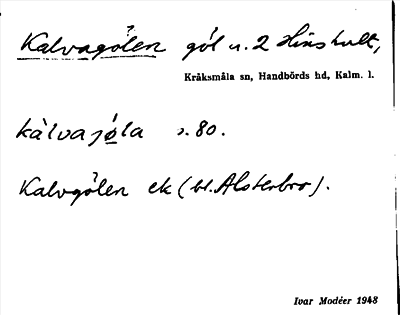 Kalvagölen göl n. 2 Hinshult,
Kråksmåla sn, Handbörds hd, Kalm. l.
kàlvajǿla s. 80.
Kalvgölen ek (bl. Alsterbro).
Ivar Modéer 1948